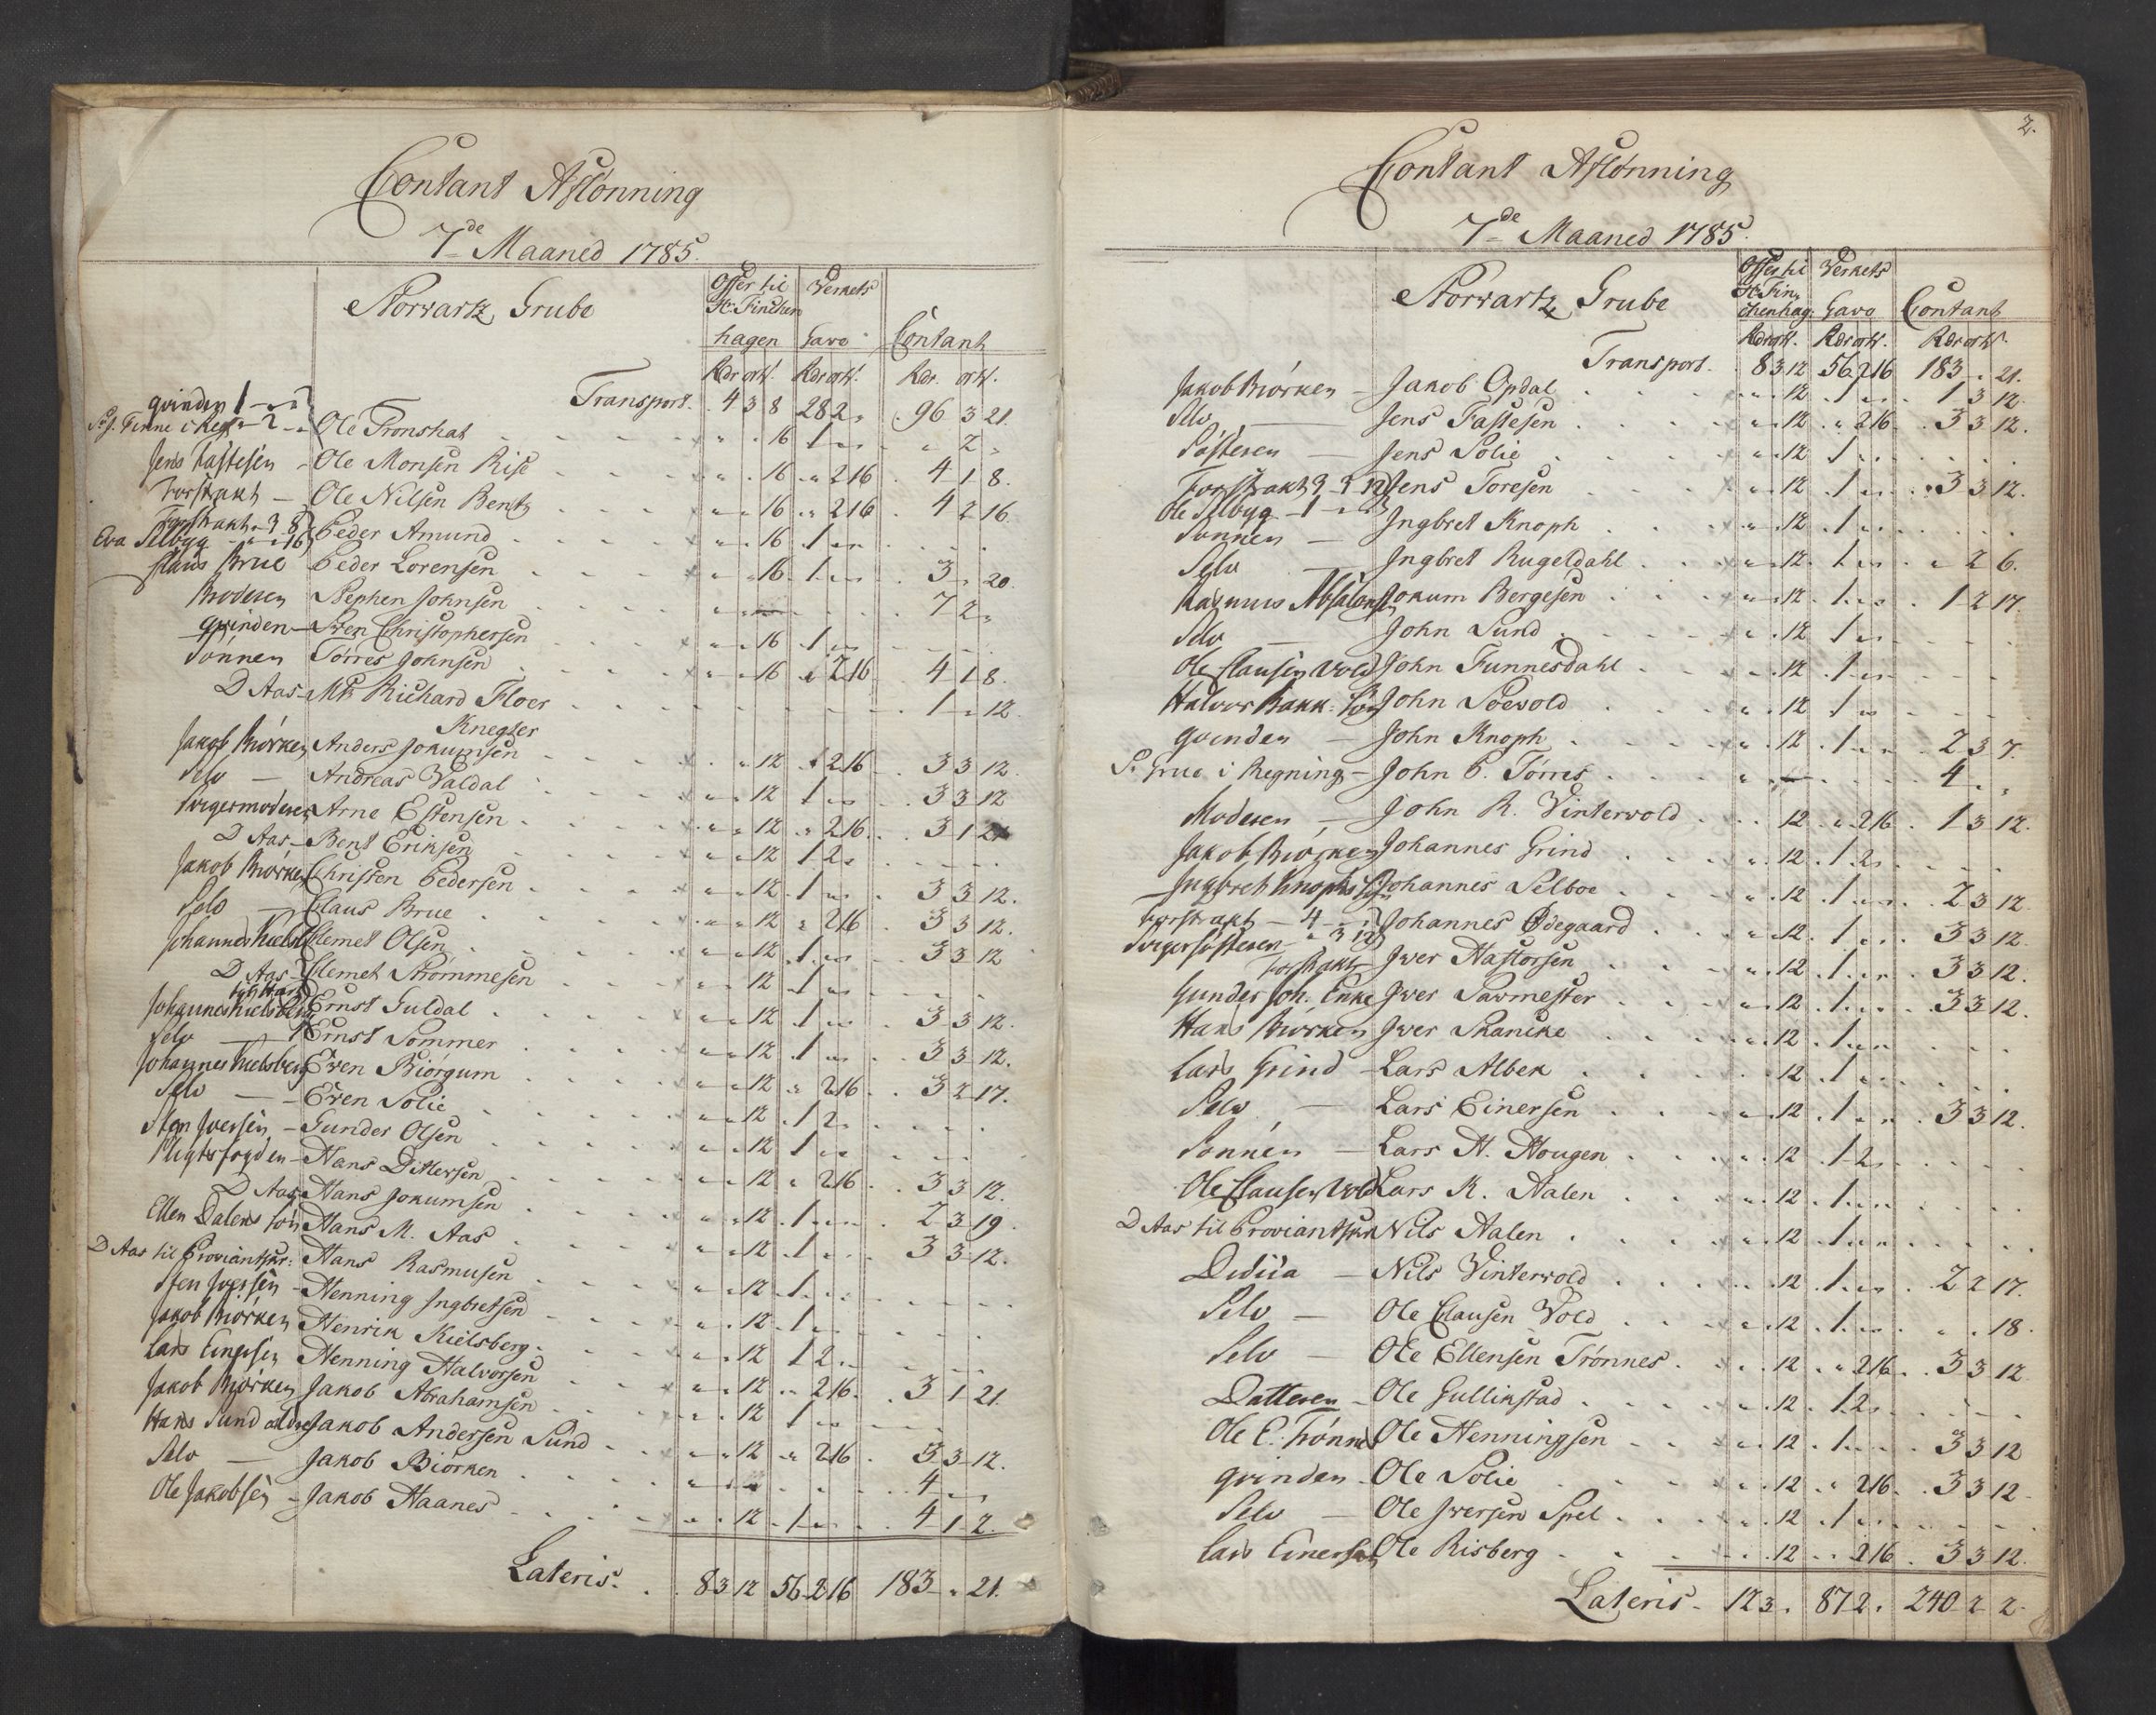 Contant Aflønning
7de Maaned 1785.
Norwartz Grube
Offer til Hr. Finchen hagen
Verkets Gave
Contant
Rdr ort. Rdr ort. Rdr. ort.
Transport. 4 3 8 28 2 " 96 3 21.
qvinden 1 - " -
Sr. J. Finne i Regn - 2 - Ole Tronshat " " 16 1 " " " 2 "
Jens Fastesen - Ole Monsen Rise " " 16 " 2 16 4 1 8.
Forstrakt - Ole Nilsen Bentz " " 16 " 2 16 4 2 16.
Forstrakt - 3 8
Eva Selbyg - " 16 Peder Amund " " 16 1 " "
Claus Brue Peder Lorensen " " 16 1 " " 3 " 20.
Moderen Stephen Johnsen 7 2 "
qvinden - Swen Christophersen " " 16 1 " "
Sønnen Tørres Johnsen " " 16 " 2 16 4 1 8.
D Aas - Mr. Richard Floer 1 " 12.
Knegter
Jakob Biørken Anders Jokumsen " " 12 " 2 16 3 3 12.
Selv - Andreas Valdal " " 12 1 " " 3 3 12
Svigermoderen Arne Estensen " " 12 " 2 16 3 1 21
D Aas - Bent Eriksen " " 12 1 2 "
Jakob Biørken Christen Pedersen " " 12 1 " " 3 3 12.
Selv - Claus Brue " " 12 " 2 16 3 3 12.
Johannes Kielsb Clemet Olsen " " 12 1 " " 3 3 12
D Aas - Clemet Strømmesen " " 12 1 " "
Johannes Kielsberg Ernst Guldal " " 12 1 " " 3 3 12.
Selv - Ernst Sommer " " 12 1 " " 3 3 12.
Johannes Kielsberg Ewen Biørgum " " 12 " 2 16 3 2 17.
Selv - Ewen Solie " " 12 1 2 "
Sten Iversen - Gunder Olsen " " 12 1 " "
Pligtsfogden - Hans Ditlersen " " 12 " 2 16 3 3 12.
D Aas Hans Jokumsen " " 12 1 " " 2 3 19.
Ellen Dalens søn Hans M. Aas " " 12 1 " " 3 3 12.
D Aas til Proviantskr: Hans Rasmusen " " 12 1 " "
Sten Iversen - Henning Ingbretsen " " 12 1 " "
Jakob Biørken Henrik Kielsberg " " 12 1 2 "
Lars Einersen Henning Halvorsen " " 12 " 2 16 3 1 21.
Jakob Biørken Jakob Abrahamsen " " 12 1 " "
Hans Sund ældre Jakob Andersen Sund " " 12 " 2 16 3 3 12.
Selv - Jakob Biørken 4 " "
Ole Jakobsen - Jakob Haanes " " 12 1 " " 4 1 2.
Lateris. 8 3 12 56 2 16 183 " 21.
2.
Contant Aflønning
7de Maaned 1785.
Norwartz Grube
Offer til Hr. Finchenhag:
Verkets Gave
Contant
Rdr ort. Rdr ort. Rdr ort.
Transport. 8 3 12 56 2 16 183 " 21.
Jakob Biørken - Jakob Opdal " " 12 1 " " 1 3 12.
Selv - Jens Fastesen " " 12 " 2 16 3 3 12.
Søsteren - Jens Solie " " 12 1 " "
Forstrakt 2 3 12 Jens Toresen " " 12 1 " " 3 3 12.
Ole Selbyg - 1 - " -
Sønnen - Ingbret Knoph " " 12 1 " "
Selv - Ingbret Rugeldahl " " 12 1 " " " 2 6.
Rasmus Absalons Jokum Bergesen " " 12 1 " " 1 2 17.
Selv - John Sund " " 12 1 " "
Ole Clausen Vold John Funnesdahl " " 12 1 " "
Halvor Bakk: Søn John Soewold " " 12 1 " "
qvinden - John Knoph " " 12 1 " " 2 3 7.
Sr. Grue i Regning - John P. Tørres 4 " "
Moderen - John R. Vinterwold 12 " 2 16 1 3 12.
Jakob Biørken Johannes Grind " 12 1 2 "
Ingbret Knophs Johannes Selboe " 12 1 " " 2 3 12
Forstrakt - 4 - " Johannes Ødegaard " 12 1 " " 3 3 12.
Svigersøsteren - " 3 12
Forstrakt - Iwer Hastorsen " " 12 1 " " 3 3 12.
Gunder Joh. Enke Iwer Sawmester " " 12 1 " " 3 3 12.
Hans Biørken Iwer Skancke " " 12 1 " "
Lars Grind - Lars Albek " 12 1 " "
Selv - Lars Einersen " " 12 1 " " 3 3 12.
Sønnen - Lars H. Hougen " " 12 1 2 "
Ole Clausen Vold Lars K. Aalen " " 12 1 " "
D Aas til Proviantskr Nils Aalen " " 12 1 " "
Nils Vinterwold " " 12 1 " " 2 2 17.
Selv - Ole Clausen Vold " " 12 1 " " " " 18.
Selv - Ole Ellensen Trønnes " " 12 " 2 16 3 3 12
Datteren - Ole Gullikstad " " 12 1 2 "
Ole E. Trønnes Ole Henningsen " " 12 1 " " 3 3 12
qvinden - Ole Solie " " 12 " 2 16 3 3 12
Selv - Ole Iwersen Spel " " 12 1 " "
Lars Einersen Ole Risberg " " 12 " 2 16 3 3 12.
Lateris - 12 3 " 87 2 " 240 2 2.